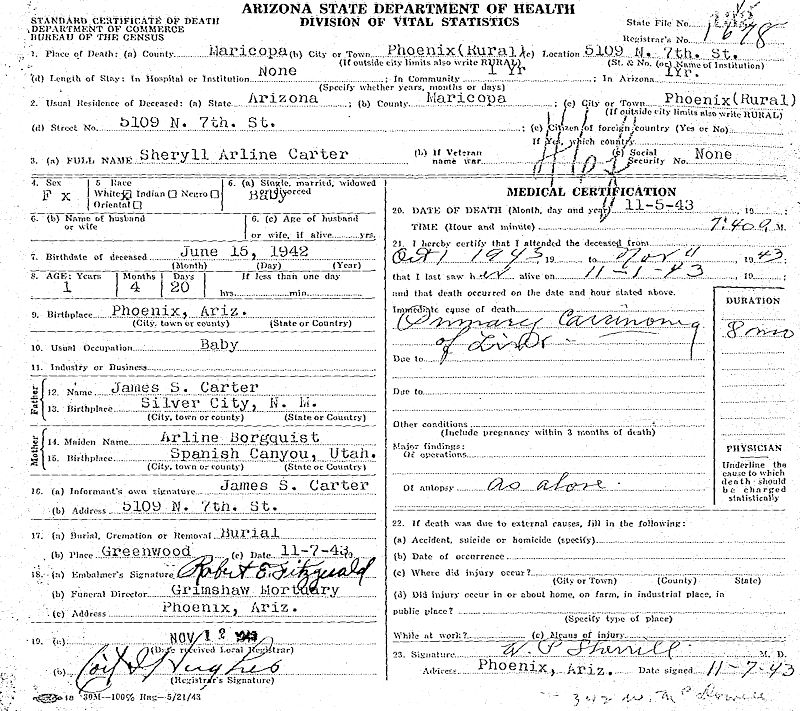 ARIZONA STATE DEPARTMENT OF HEALTH
DIVISION OF VITAL STATISTICS
STANDARD CERTIFICATE OF DEATH
DEPARTMENT OF COMMERCE
BUREAU OF THE CENSUS
State File No.
Registrar's No. 1698
1. Place of Death: (a) County Maricopa (b) City or Town Phoenix(Rural) (c) Location 5109 N. 7th. St
(If outside city limits also write RURAL) (St. & No. (or) Name of Institution)
(d) Length of Stay: In Hospital or Institution None In Community 1 Yr In Arizona 1Yr.
(Specify whether years, months or days)
2. Usual Residence of Deceased: (a) State Arizona (b) County Maricopa (c) City or Town Phoenix(Rural)
(If outside city limits also write RURAL)
(d) Street No. 5109 N. 7th. St. (e) Citizen of foreign country (Yes or No)
If Yes, which country
3. (a) FULL NAME Sheryll Arline Carter (b) If Veteran name war (c) Social Security No. None
4. Sex F x 5 Race White x Indian Negro Oriental 6. (a) Single, married, widowed divorced Baby
6. (b) Name of husband or wife 6. (c) Age of husband or wife, if alive yrs.
7. Birthdate of deceased June 15, 1942
(Month) (Day) (Year)
8. AGE: Years Months Days If less than one day
1 4 20 hrs. min.
9. Birthplace Phoenix, Ariz.
(City, town or county) (State or Country)
10. Usual Occupation Baby
11. Industry or Business
Father
12. Name James S. Carter
13. Birthplace Silver City, N. M.
(City, town or county) (State or Country)
Mother
14. Maiden Name Arline Borgquist
15. Birthplace Spanish Canyou, Utah.
(City, town or county) (State or Country)
16. (a) Informant's own signature James S. Carter
(b) Address 5109 N. 7th. St.
17. (a) Burial, Cremation or Removal Burial
(b) Place Greenwood (c) Date 11-7-43
18. (a) Embalmer's Signature Robert E. Fitzgerald
(b) Funeral Director Grimshaw Mortuary
(c) Address Phoenix, Ariz.
19. (a) NOV 12 1943
(Date received Local Registrar)
(b) Hughes
(Registrar's Signature)
30M—100% Rag—5/21/43
MEDICAL CERTIFICATION
20. DATE OF DEATH (Month, day and year) 11-5-43 19
TIME (Hour and minute) 7:40a M.
21. I hereby certify that I attended the deceased from
Oct 1 1943 19 to Nov 4 1943
that I last saw her alive on 11-1-43 19
and that death occurred on the date and hour stated above.
Immediate cause of death
Primary Carsinoma
of Liver
DURATION
8 mo
Due to
Due to
Other conditions
(Include pregnancy within 3 months of death)
Major findings:
Of operations
Of autopsy as above.
PHYSICIAN
Underline the cause to which death should be charged statistically
22. If death was due to external causes, fill in the following:
(a) Accident, suicide or homicide (specify)
(b) Date of occurrence
(c) Where did injury occur?
(City or Town) (County) State)
(d) Did injury occur in or about home, on farm, in industrial place, in
public place?
(Specify type of place)
While at work? (e) Means of injury
23. Signature W. P. Sherrill M. D.
Address Phoenix, Ariz. Date signed 11-7-43